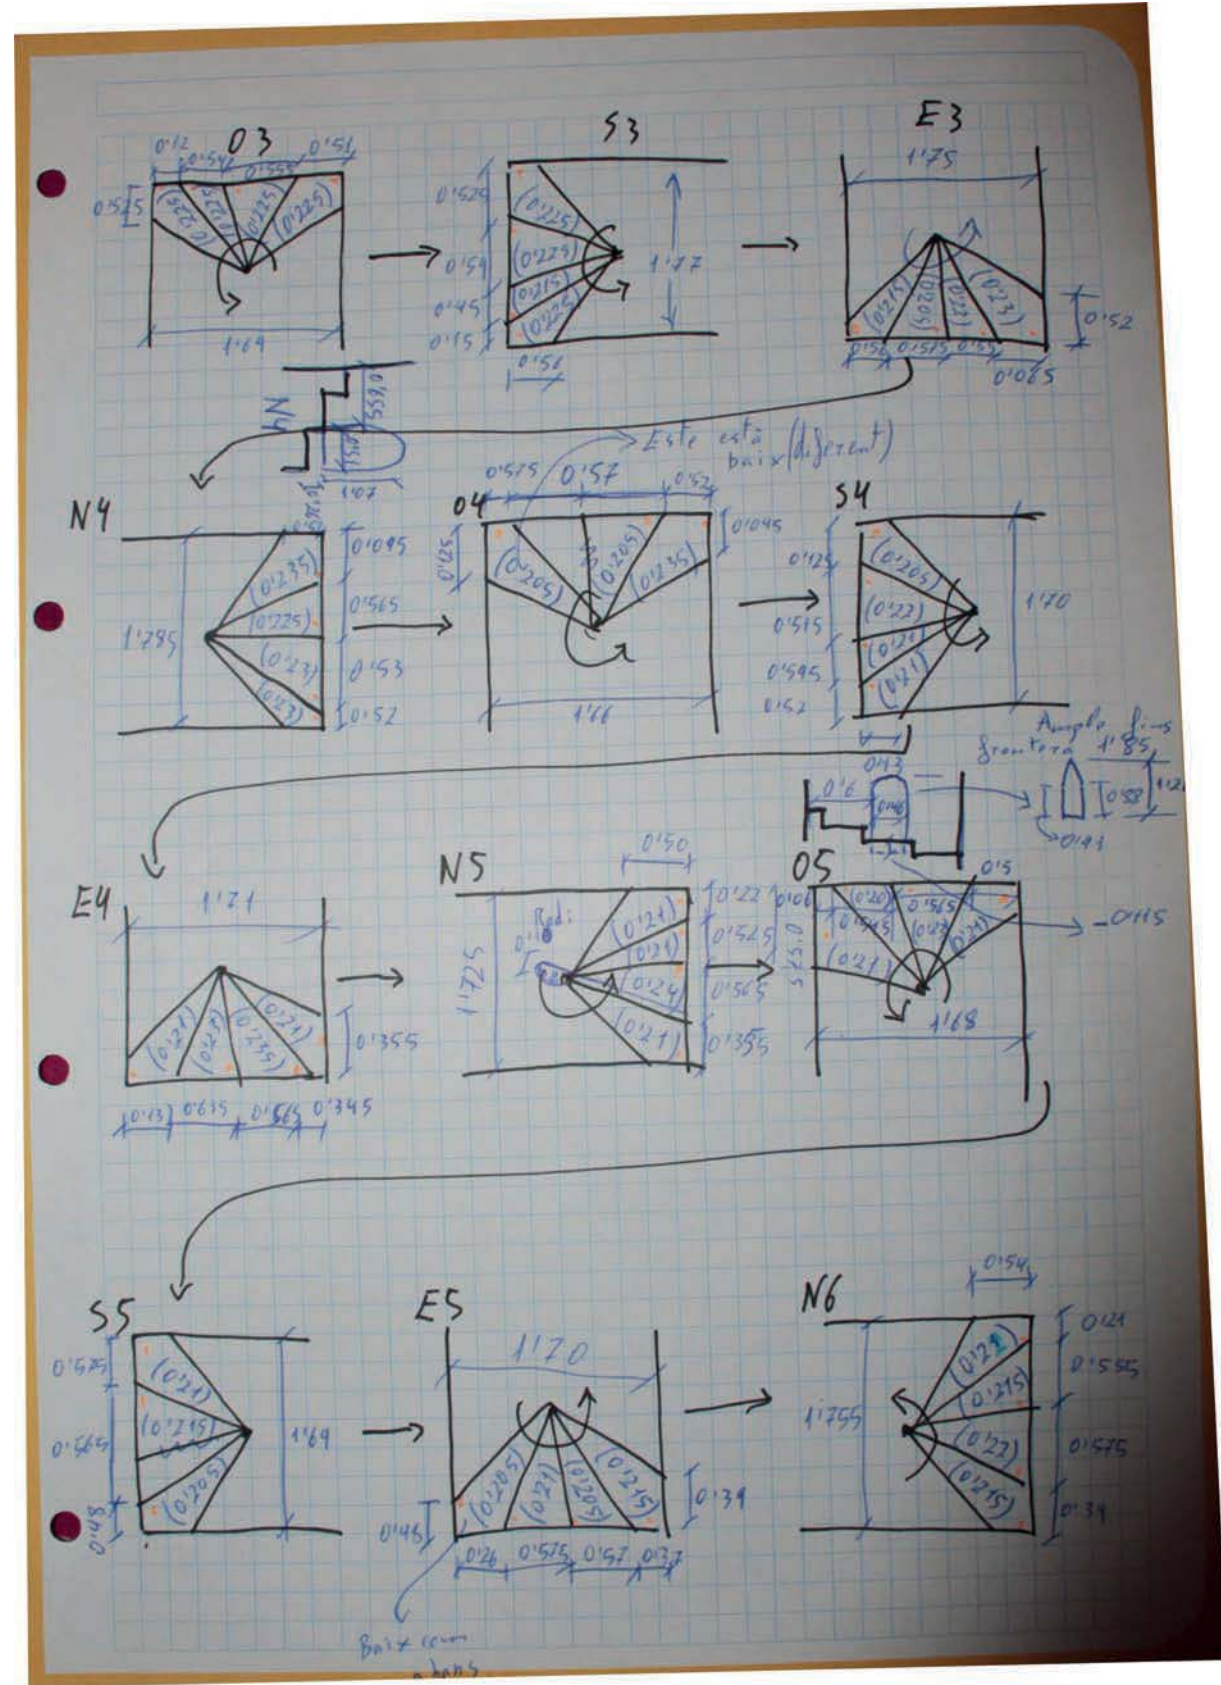 O3
0'12 0'54 0'555 0'51
0'525
(0'225) (0'225) (0'225) (0'225)
1'69
S3
0'525
0'54
0'45
0'15
(0'225)
(0'225)
(0'215)
(0'225)
1'77
0'56
E3
1'75
(0'215) (0'205) (0'22) (0'23)
0'52
0'56 0'515 0'55
0'065
N4
1'07
Este està
baix (diferent)
N4
(0'235)
(0'225)
(0'23)
1'785
0'095
0'565
0'53
0'52
O4
0'575 0'57 0'52
0'125
0'095
(0'205) (0'205) (0'235)
1'66
S4
0'125
0'515
0'595
0'52
(0'205)
(0'22)
(0'21)
(0'21)
1'70
0'43
Ample fins
frontera 1'85
0'6
0'88
E4
1'71
(0'21) (0'235) (0'21)
0'355
0'13 0'635 0'565 0'345
N5
0'50
1'725
(0'21)
(0'21)
(0'24)
(0'21)
0'22
0'525
0'565
0'355
O5
0'06
0'5
0'575
(0'20) 0'565
(0'21) (0'22) (0'21)
1'68
-0'115
S5
0'525
0'565
0'48
(0'21)
(0'215)
(0'205)
1'69
E5
1'70
(0'205) (0'21) (0'205) (0'215)
0'48
0'39
0'26 0'575 0'57 0'37
Baix com
abans
N6
0'54
1'755
(0'21)
(0'215)
(0'22)
(0'215)
0'21
0'555
0'575
0'39